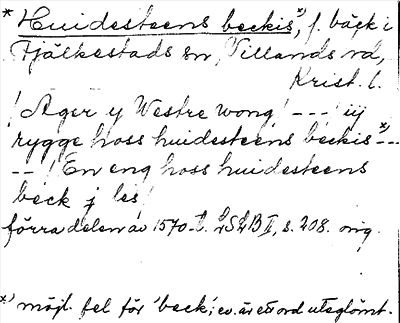 * Huidesteens beckis *), f. bäck i
Fjälkestads sn, Villands hd,
Krist. l.
! Ager y Westre wong! --- ! iij
rygge hoss huidesteens beckis *) --
-- ! En eng hoss huidesteens
beck j les!
förra delen av 1570-t. LSLB II, s. 208. orig.
*) möjl. fel för 'beck'; ev. är ett ord uteglömt.